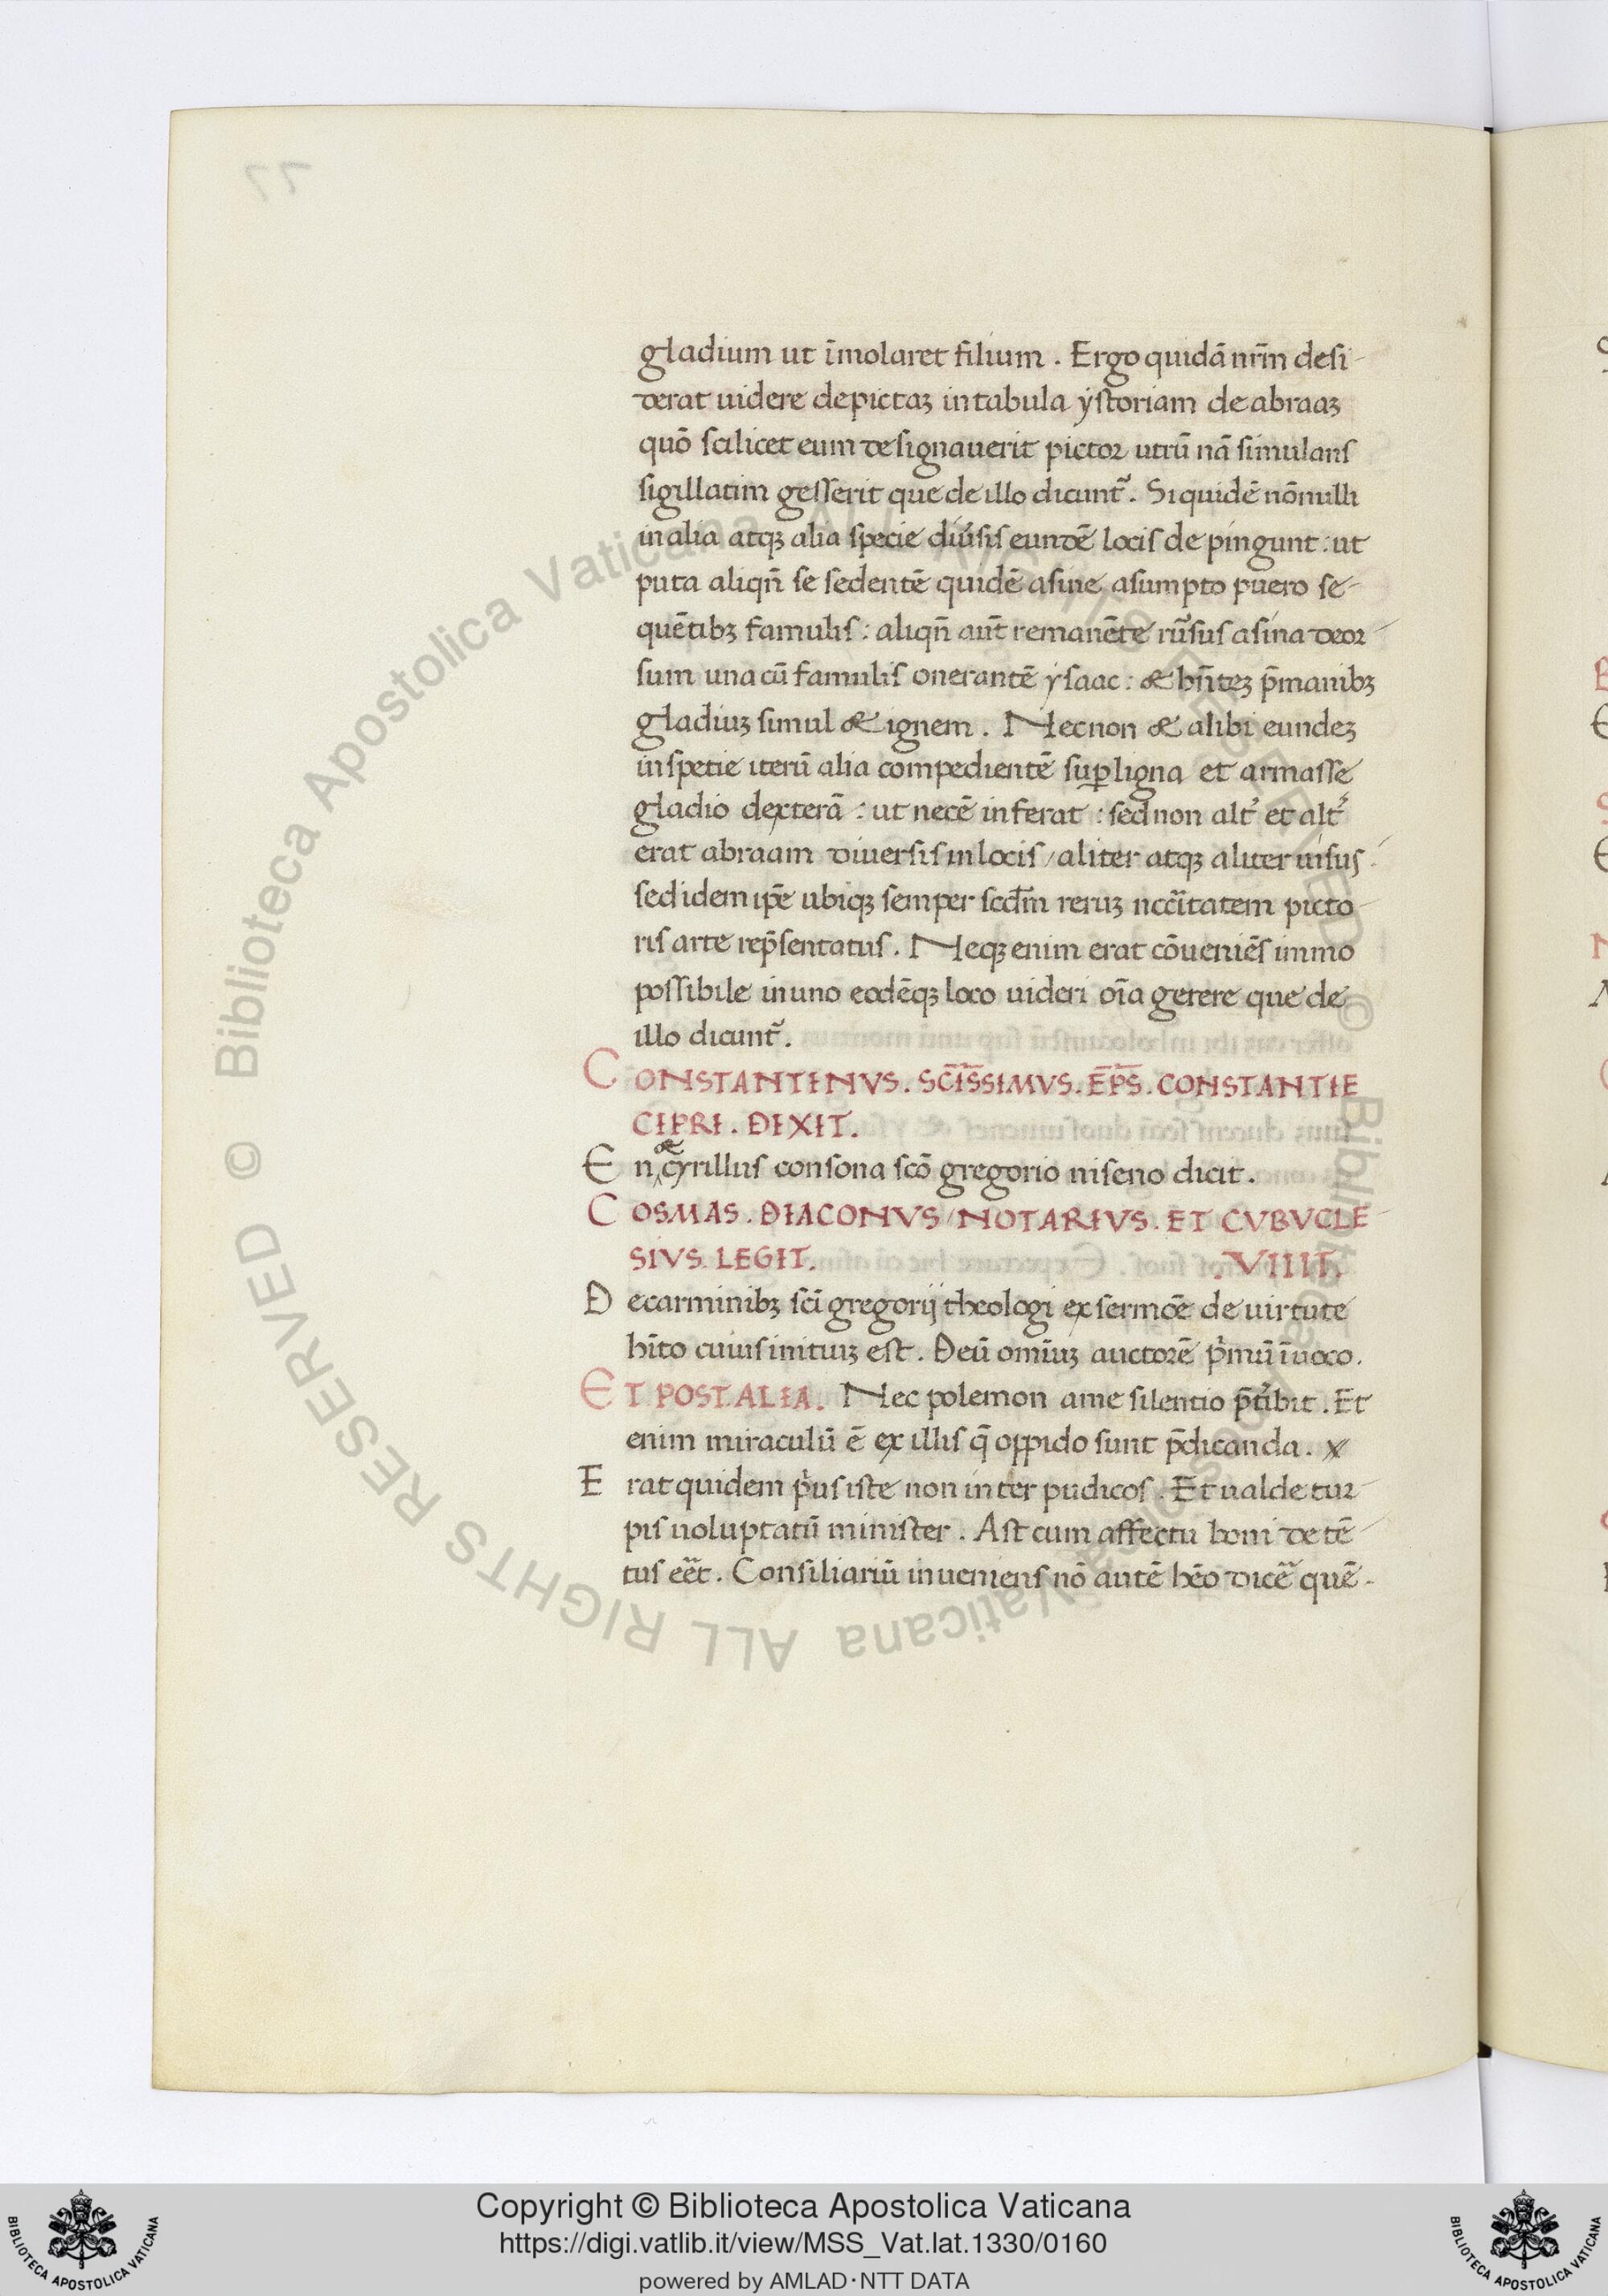 gladium ut īmolaret filium . Ergo quidā nr̄m desi-
derat uidere depictaꝫ in tabula ystoriam de abraaꝫ
quō scilicet eum designauerit pictor utrū nā simulans
sigillatim gesserit que de illo dicunt᷑. Siquidē nōnulli
in alia atqꝫ alia specie diu᷑sis eundē locis depingunt : ut
puta aliqn̄ se sedentē quidē asine asumpto puero se-
quētibꝫ famulis : aliqn̄ aūt remanēte ru᷑sus asina deor-
sum una cū famulis onerantē ysaac : & hn̄teꝫ p̄ manibꝫ
gladiuꝫ simul & ignem . Necnon & alibi eundeꝫ
in spetie iterū alia compedientē suꝑ ligna et armasse
gladio dexterā : ut necē inferat : sed non alt᷑ et alt᷑
erat abraam diuersis in locis / aliter atqꝫ aliter uisus :
sed idem ip̄e ubiqꝫ semper scd̄m reruꝫ nccītatem picto-
ris arte rep̄sentatus . Neqꝫ enim erat cōueniēs immo
possibile in uno eodēqꝫ loco uideri oīa gerere que de
illo dicunt᷑.
CONSTANTINVS . SCĪSSIMVS . EP̄S . CONSTANTIE
CIPRI . DIXIT .
En & cyrillus consona scō gregorio niseno dicit .
COSMAS . DIACONVS / NOTARIVS . ET CVBVCLE-
SIVS . LEGIT . . VIIII .
De carminibꝫ scī gregorij theologi ex sermōe de uirtute
hīto cuius inituꝫ est . Deū omīuꝫ auctorē p̓mū īuoco .
ET POST ALIA . Nec polemon a me silentio p̄t᷑ibit . Et
enim miraculū ē ex illis q̄ oppido sunt p̄dicanda .
Erat quidem p̓us iste non inter pudicos . Et ualde tur-
pis uoluptatū minister . Ast cum affectu boni detē-
tus eēt . Consiliariū inueniens nō autē hēo dicē quē-
Copyright © Biblioteca Apostolica Vaticana
https://digi.vatlib.it/view/MSS_Vat.lat.1330/0160
powered by AMLAD·NTT DATA
BIBLIOTECA APOSTOLICA VATICANA
BIBLIOTECA APOSTOLICA VATICANA
© Biblioteca Apostolica Vaticana ALL RIGHTS RESERVED © Biblioteca Apostolica Vaticana ALL RIGHTS RESERVED